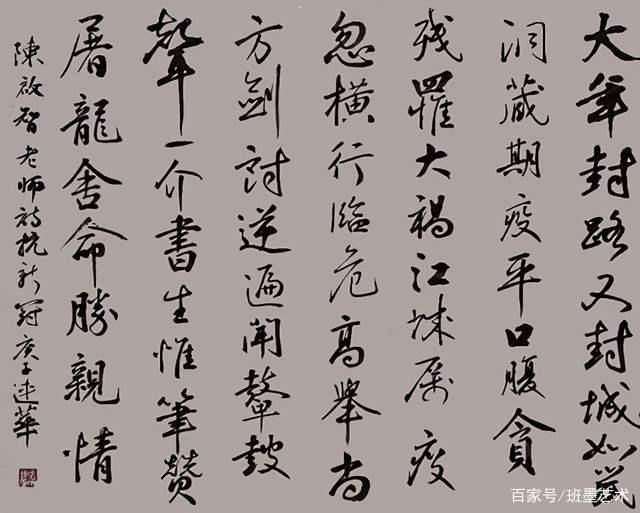 大年封路又封城如鼠
洞藏期疫平口腹貪
残罹大禍江城厉疫
忽橫行臨危高舉尚
方劍討逆遍聞鼙鼓
聲一介書生惟筆贊
屠龍舍命勝親情
陳啟智老師詩抗新冠庚子建華
百家号/班墨艺术